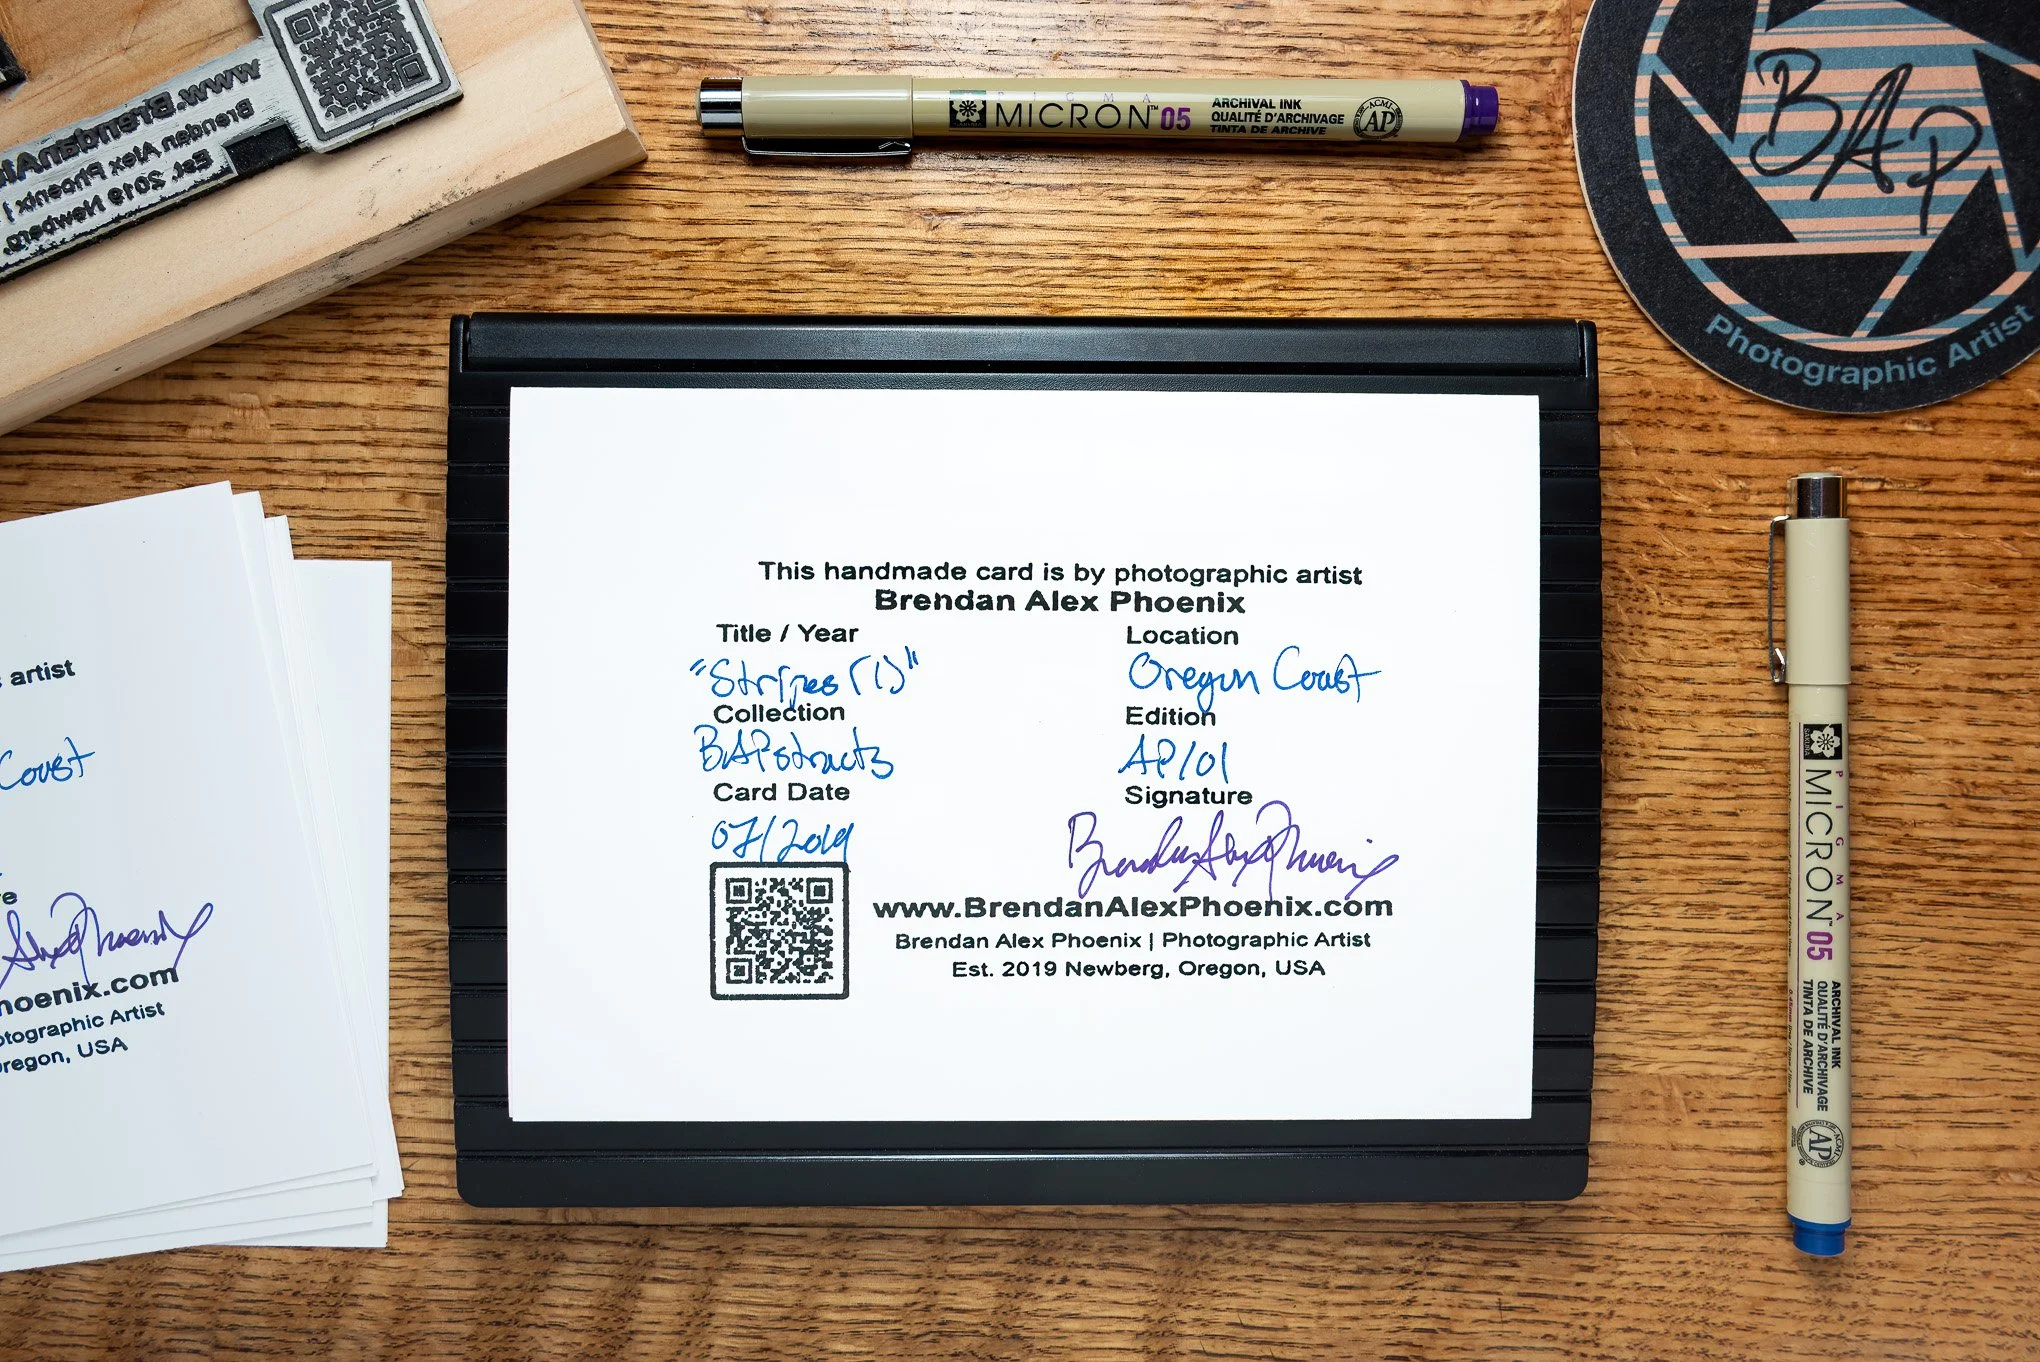 www.BrendanAl
Brendan Alex Phoenix |
Est. 2019 Newberg,
PIGMA
MICRON™ 05
ARCHIVAL INK
QUALITÉ D'ARCHIVAGE
TINTA DE ARCHIVE
ACMI
AP
BAP
Photographic Artist
This handmade card is by photographic artist
Brendan Alex Phoenix
Title / Year
Location
"Stripes (1)"
Oregon Coast
Collection
Edition
BAPstracts
AP/01
Card Date
Signature
07/2019
Brendan Alex Phoenix
www.BrendanAlexPhoenix.com
Brendan Alex Phoenix | Photographic Artist
Est. 2019 Newberg, Oregon, USA
s artist
Coast
re
Alex Phoenix
hoenix.com
otographic Artist
Oregon, USA
PIGMA
MICRON™ 05
ARCHIVAL INK
QUALITÉ D'ARCHIVAGE
TINTA DE ARCHIVE
ACMI
AP